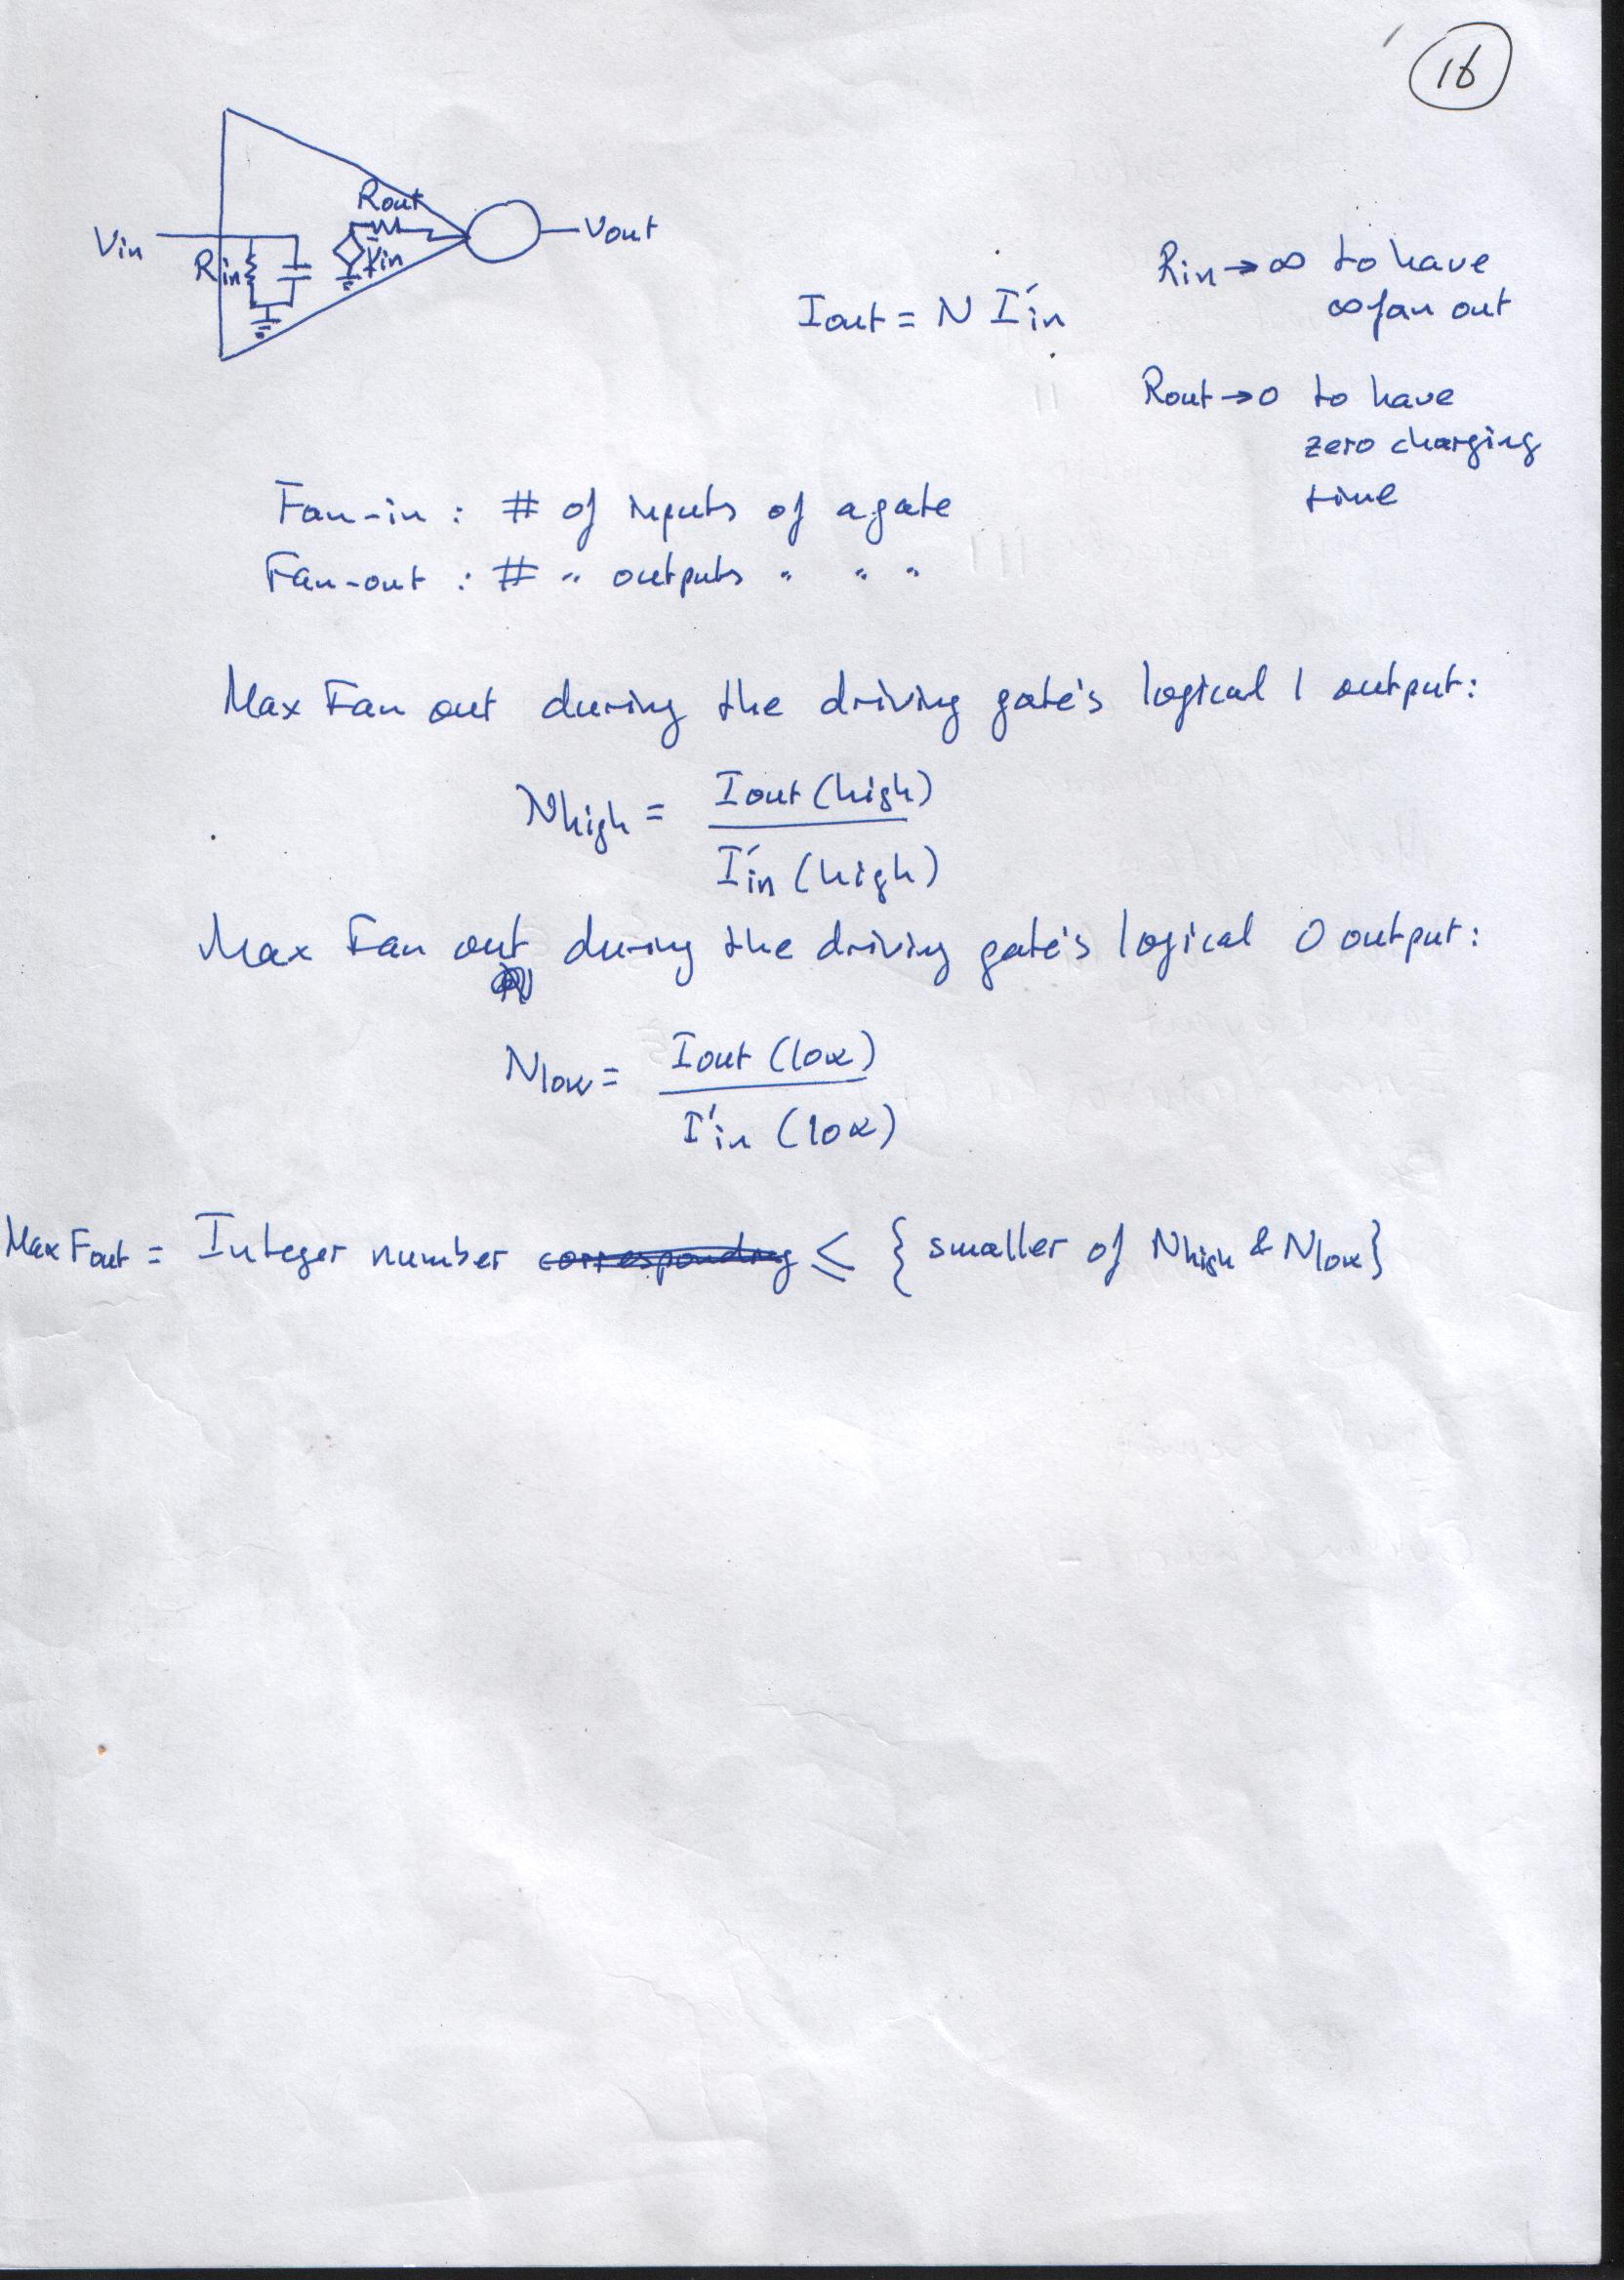 16
Rout
Vin
Rin
Vout
Iout = N I'in
Rin → ∞ to have
∞ fan out
Rout → 0 to have
zero charging
time
Fan-in : # of inputs of a gate
Fan-out : # " outputs " " "
Max Fan out during the driving gate's logical 1 output:
Nhigh = Iout (high)
I'in (high)
Max Fan out during the driving gate's logical 0 output:
Nlow = Iout (low)
I'in (low)
Max Fout = Integer number corresponding ≤ { smaller of Nhigh & Nlow}